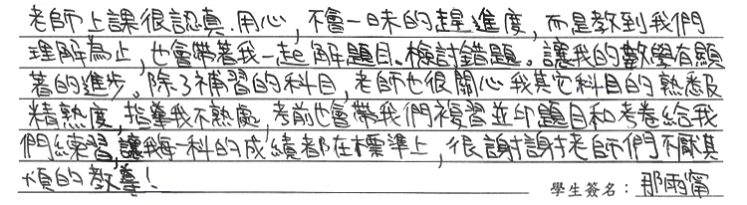 老師上課很認真、用心，不會一日未的趕進度，而是教到我們
理解為止，也會帶著我一起解題目、檢討錯題。讓我的數學有顯
著的進步。除了補習的科目，老師也很關心我其它科目的熟悉及
精熟度，指導我不熟處，考前也會帶我們複習並印題目和考卷給我
們練習，讓我每一科的成績都在標準上，很謝謝老師們不厭其
煩的教導！
學生簽名：那雨甯